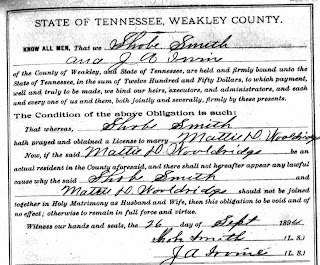 STATE OF TENNESSEE, WEAKLEY COUNTY.
KNOW ALL MEN, That we Shobe Smith
and J A Irvine
of the County of Weakley, and State of Tennessee, are held and firmly bound unto the
State of Tennessee, in the sum of Twelve Hundred and Fifty Dollars, to which payment,
well and truly to be made, we bind our heirs, executors, and administrators, and each
and every one of us and them, both jointly and severally, firmly by these presents.
The Condition of the above Obligation is such:
That whereas, Shobe Smith
hath prayed and obtained a License to marry Mattie D. Wooldridge
Now, if the said Mattie D Wooldridge be an
actual resident in the County aforesaid, and there shall not hereafter appear any lawful
cause why the said Shobe Smith and
Mattie D Wooldridge should not be joined
together in Holy Matrimony as Husband and Wife, then this obligation to be void and of
no effect; otherwise to remain in full force and virtue.
Witness our hands and seals, the 26 day of Sept 189
Shobe Smith (L. S.)
J A Irvine (L. S.)